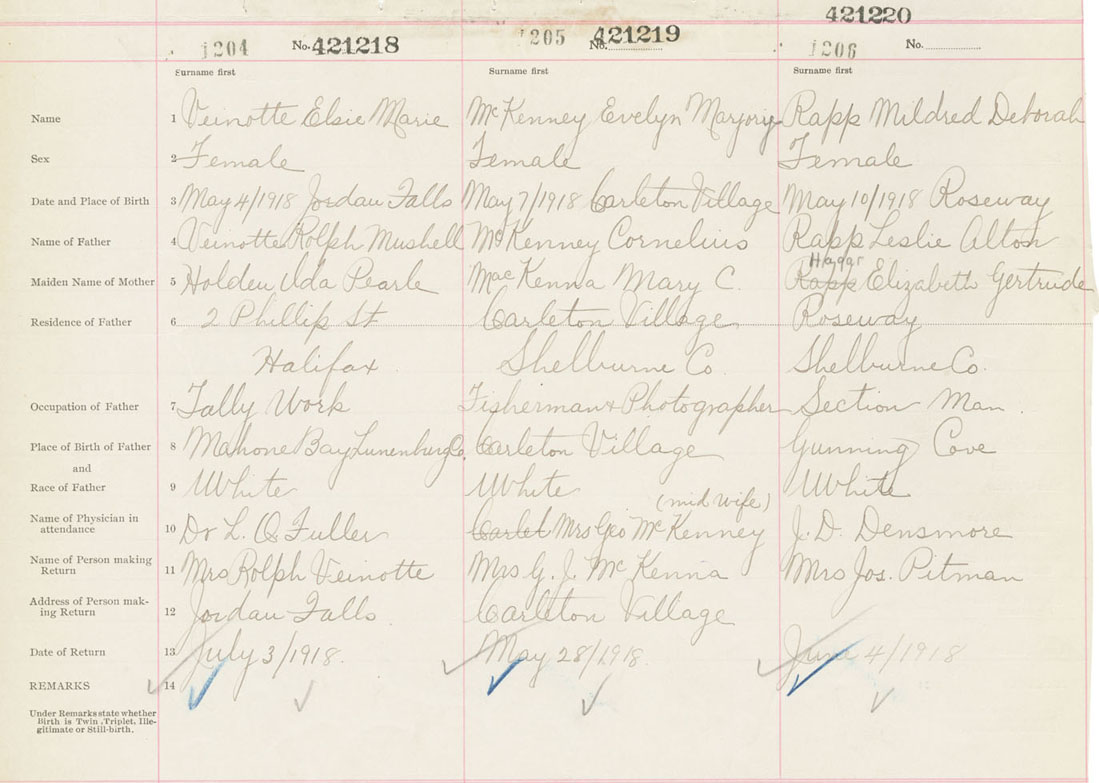 421220
1204 No. 421218 1205 No. 421219 1206 No.
Surname first Surname first Surname first
Name 1 Veinotte Elsie Marie McKenney Evelyn Marjory Rapp Mildred Deborah
Sex 2 Female Female Female
Date and Place of Birth 3 May 4/1918 Jordan Falls May 7/1918 Carleton Village May 10/1918 Roseway
Name of Father 4 Veinotte Rolph Mushell McKenney Cornelius Rapp Leslie Alton
Hagar
Maiden Name of Mother 5 Holden Ida Pearle MacKenna Mary C. Rapp Elizabeth Gertrude
Residence of Father 6 2 Phillip St Carleton Village Roseway
Halifax Shelburne Co. Shelburne Co.
Occupation of Father 7 Tally Work Fisherman & Photographer Section Man.
Place of Birth of Father 8 Mahone Bay Lunenburg Co. Carleton Village Gunning Cove
and
Race of Father 9 White White White
(mid wife)
Name of Physician in
attendance 10 Dr L. O. Fuller Carlet Mrs Geo McKenney J. D. Densmore
Name of Person making
Return 11 Mrs Rolph Veinotte Mrs G. J. McKenna Mrs Jos. Pitman
Address of Person mak-
ing Return 12 Jordan Falls Carleton Village
Date of Return 13 July 3/1918. May 28/1918 June 4/1918
REMARKS 14
Under Remarks state whether
Birth is Twin, Triplet, Ille-
gitimate or Still-birth.